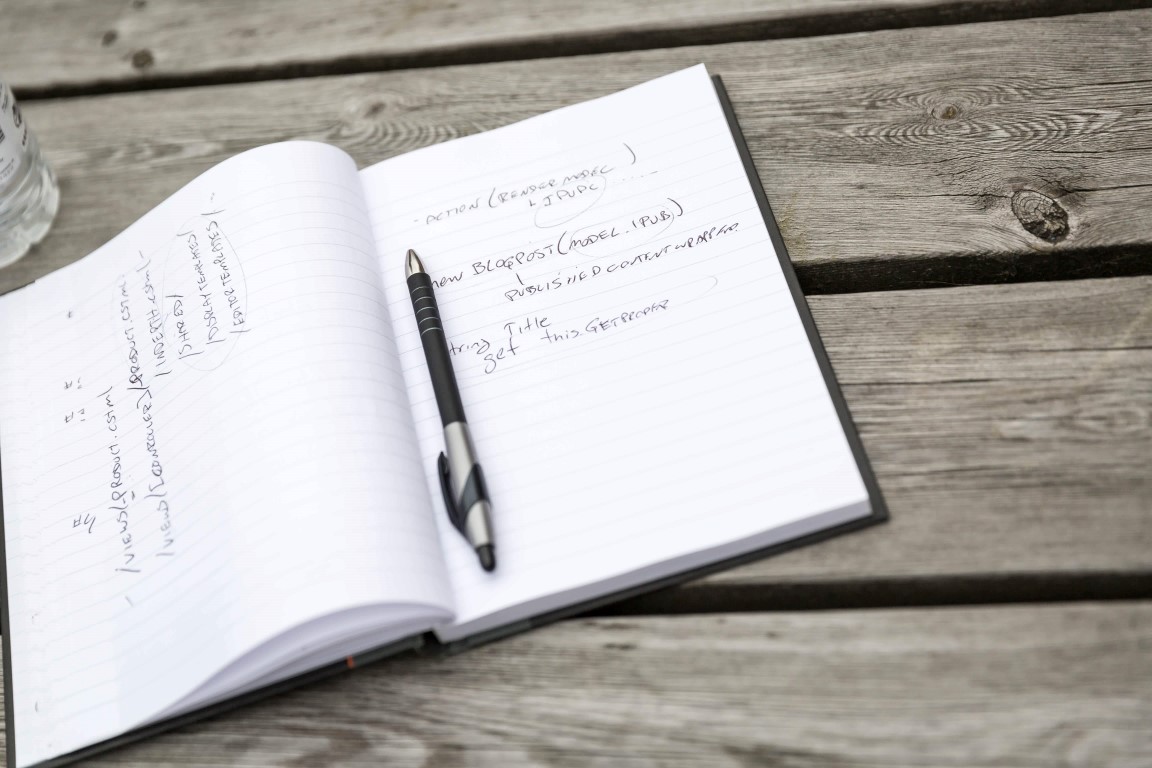 /VIEWS/PRODUCT.CSTML
/VIEWS/[CONTROLLER]/PRODUCT.CSTML
/INDEPTH.CSTML
/SHARED/
/DISPLAYTEMPLATES/
/EDITORTEMPLATES/
- ACTION (RENDERMODEL ) .....
↳ IPUPC
new BLOGPOST (MODEL.IPUB)
PUBLISHEDCONTENTWRAPPER
tring Title
get this.GETPROPAP